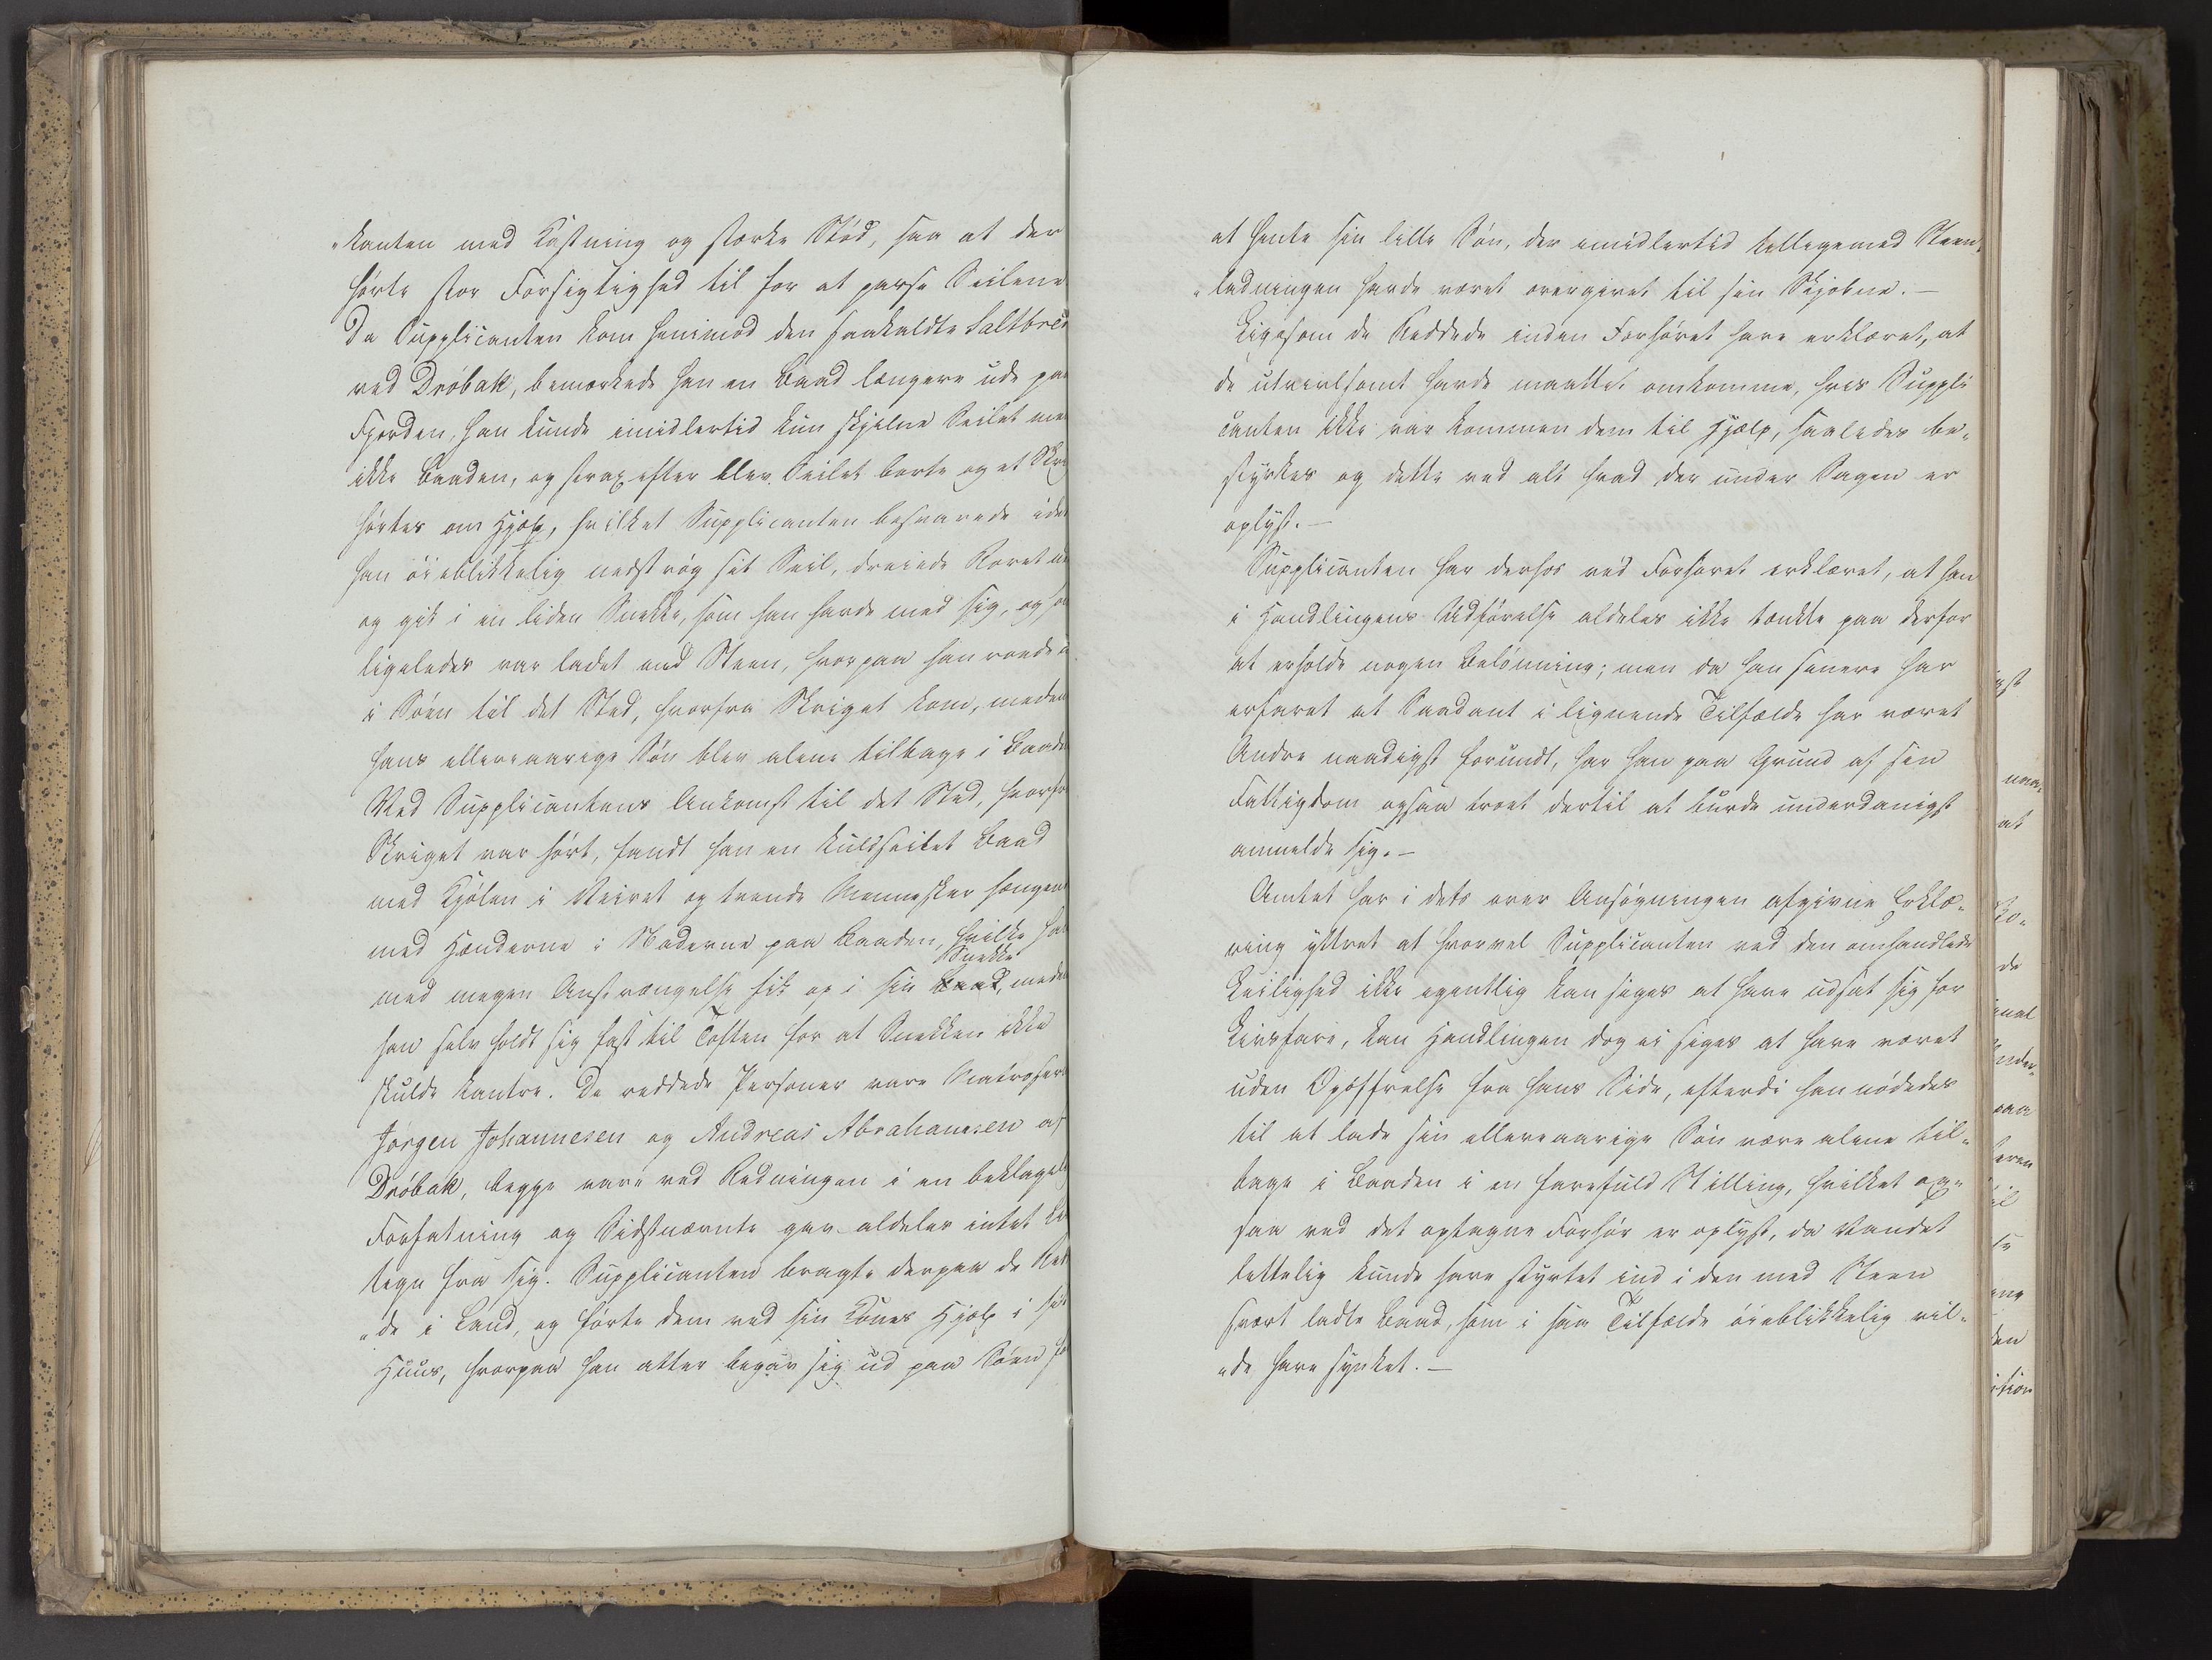 „kanten med Kastning og stærke Stød, saa at der
hørte stor Forsigtighed til for at passe Seilene
Da Supplicanten kom henimod den saakaldte Saltbod
ved Drøbak, bemærkede han en Baad længere ude paa
Fjorden, han kunde imidlertid kun skjelne Seilet men
ikke Baaden, og strax efter blev Seilet borte og et Skrig
hørtes om Hjælp, hvilket Supplicanten besvarede idet
han øieblikkelig nedstrøg sit Seil, dreiede Roret
og gik i en liden Snekke, som han havde med sig, og som
ligeledes var ladet med Steen, hvorpaa han roede
i Søen til det Sted, hvorfra Skriget kom, medens
hans elleveaarige Søn blev alene tilbage i Baaden
Ved Supplicantens Ankomst til det Sted, hvorfra
Skriget var hørt, fandt han en kuldseilet Baad
med Kjølen i Veiret og tvende Mennesker hængende
med Hænderne i Naderne paa Baaden, hvilke han
Snekke
med megen Anstrængelse fik op i sin Baad, medens
han selv holdt sig fast til Toften for at Snekken ikke
skulde kantre. De reddede Personer vare Matroserne
Jørgen Johannesen og Andreas Abrahamsen af
Drøbak, begge vare ved Redningen i en beklagelig
Forfatning og Sidstnævnte gav aldeles intet Livs
tegn fra sig. Supplicanten bragte derpaa de Redd
„de i Land, og førte dem ved sin Kones Hjælp i sit
Huus, hvorpaa han atter begav sig ud paa Søen for
at hente sin lille Søn, der imidlertid tilligemed Steen„
„ladningen havde været overgivet til sin Skjæbne. —
Ligesom de Reddede inden Forhøret have erklæret, at
de utvivlsomt havde maattet omkomme, hvis Suppli
canten ikke var kommen dem til Hjælp, saaledes be„
styrkes og dette ved alt hvad der under Sagen er
oplyst. —
Supplicanten har derhos ved Forhøret erklæret, at han
i Handlingens Udførelse aldeles ikke tænkte paa derfor
at erholde nogen Belønning; men da han senere har
erfaret at Saadant i lignende Tilfælde har været
Andre naadigst forundt, har han paa Grund af sin
Fattigdom ogsaa troet dertil at burde underdanigst
anmelde sig. —
Amtet har i dets over Ansøgningen afgivne Erklæ„
ring yttret at hvorvel Supplicanten ved den omhandlede
Leilighed ikke egentlig kan siges at have udsat sig for
Livsfare, kan Handlingen dog ei siges at have været
uden Opoffrelse fra hans Side, efterdi han nødedes
til at lade sin elleveaarige Søn være alene til„
bage i Baaden i en farefuld Stilling, hvilket og„
saa ved det optagne Forhør er oplyst, da Vandet
lettelig kunde have styrtet ind i den med Steen
svært ladte Baad, som i saa Tilfælde øieblikkelig vil„
„de have synket. —